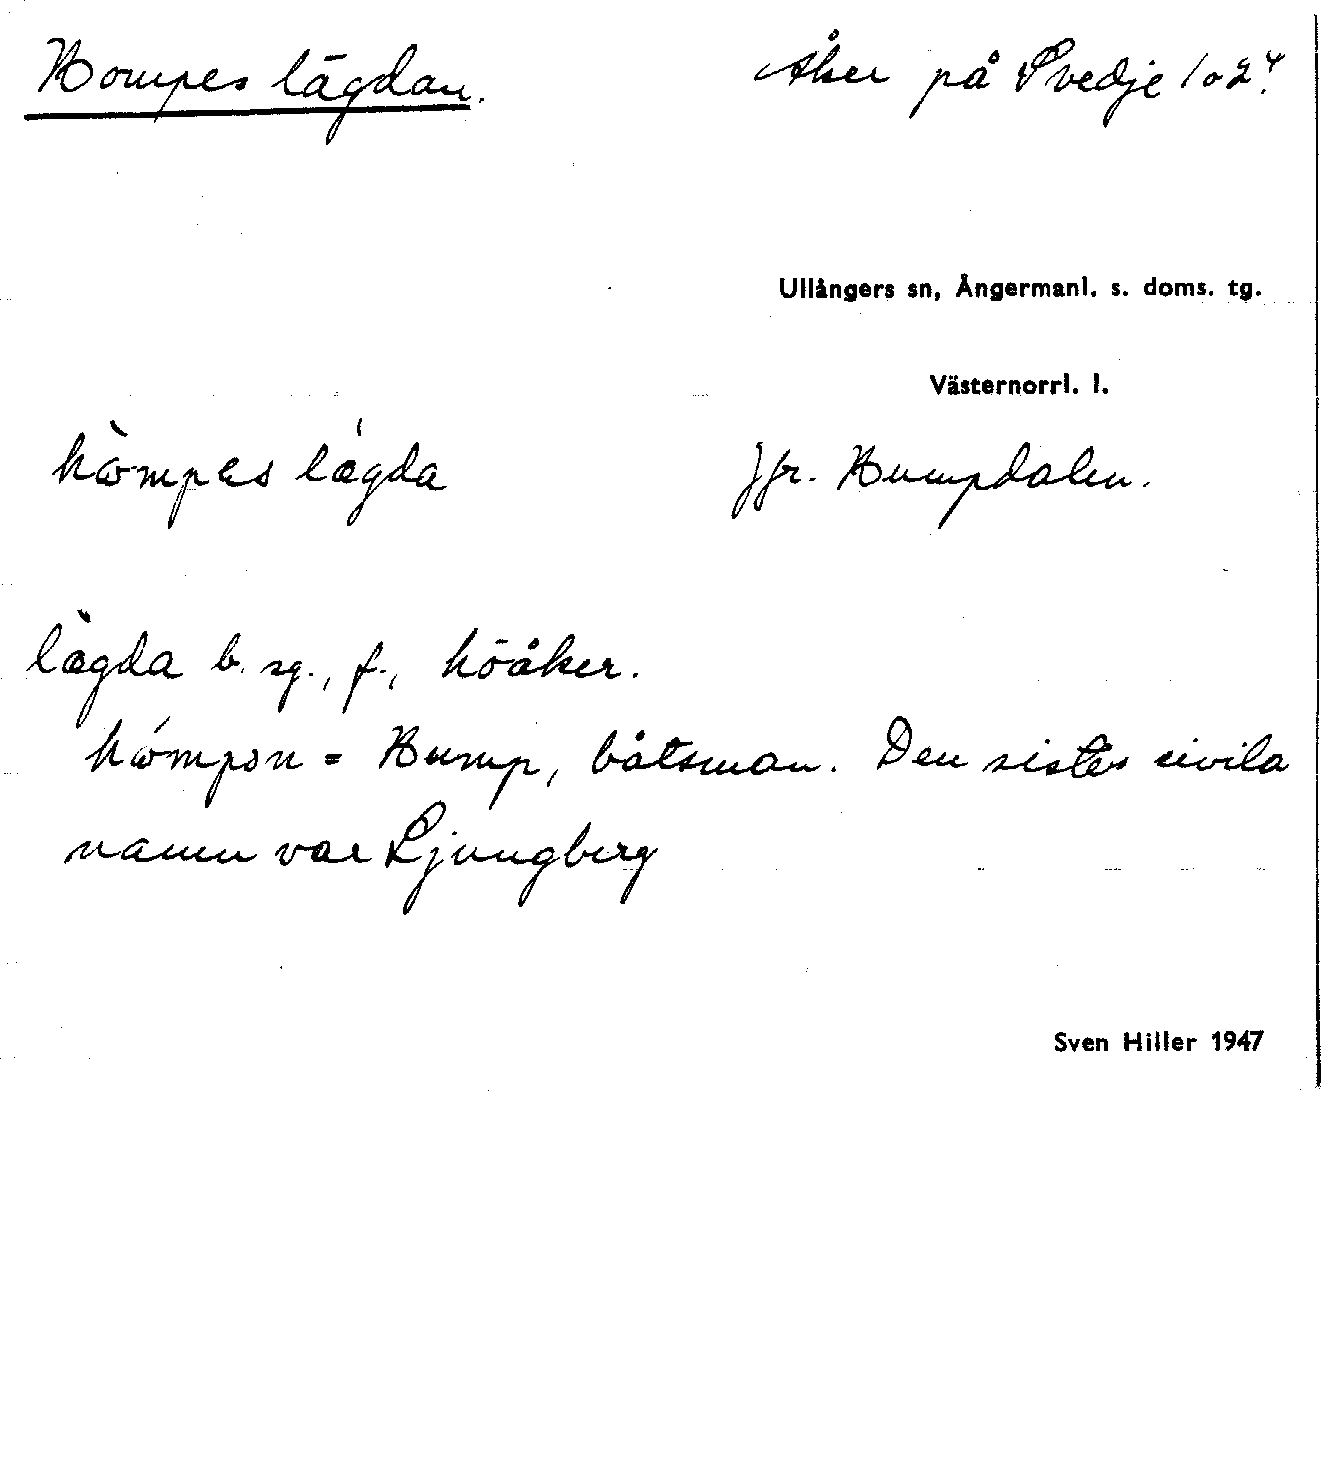 Hompes lägdan.
Åker på Svedje 1 o 2⁴.
Ullångers sn, Ångermanl. s. doms. tg.
Västernorrl. l.
hɷ̀mpɛs lǽgda
Jfr. Humpdalen.
læ̀gda b. sg., f., höåker.
hɷ́mpən = Hump, båtsman. Den sistes civila
namn var Ljungberg
Sven Hiller 1947